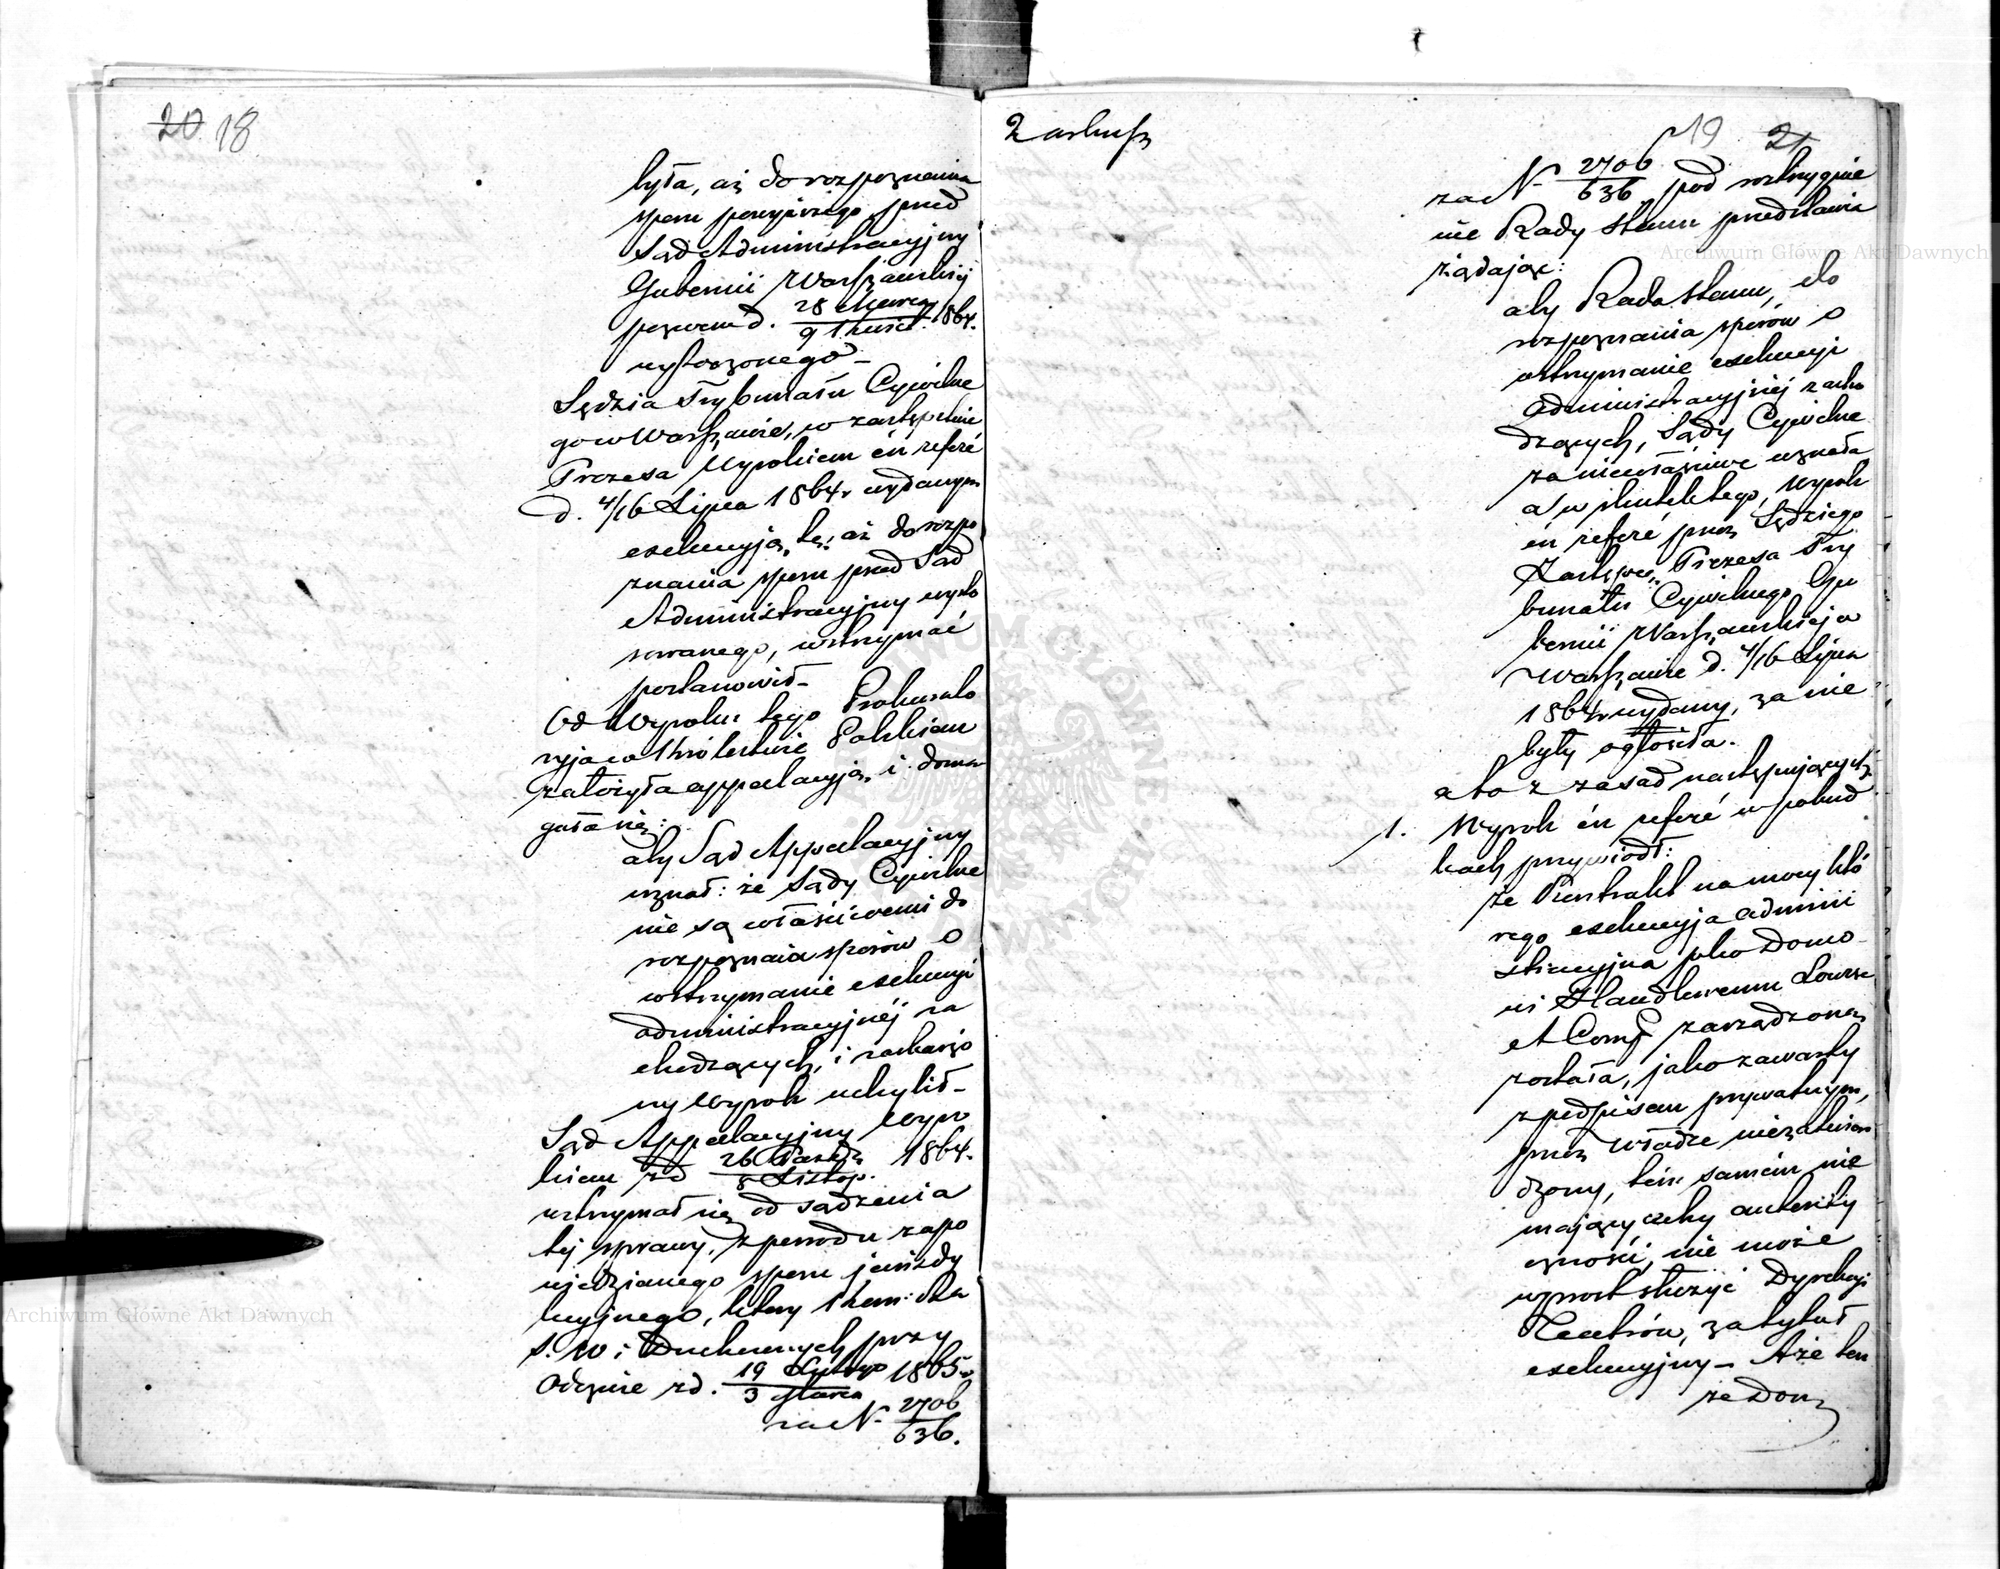 20. 18
była, aż do rozpoznania
sporu powyższego przed
Sąd Administracyjny
Gubernii Warszawskiej
pozwem d. 28 Marca / 9 Kwiet. 1864.
wytoczonego –
Sędzia Trybunału Cywilne
go w Warszawie, w zastępstwie
Prezesa Wyrokiem én référé
d. 4/16 Lipca 1864 r wydanym
exekucyją tę, aż do rozpo
znania sporu przed Sąd
Administracyjny wysto
sowanego, wstrzymać
postanowił –
Od Wyroku tego Prokurato
ryja w Królestwie Polskiem
założyła appellacyją, i doma
gała się:
aby Sąd Appellacyjny
uznał: że Sądy Cywilne
nie są właściwemi do
rozpoznania sporów o
wstrzymanie exekucyi
administracyjnéj za
chodzących, i zaskarżo
ny Wyrok uchylił –
Sąd Appellacyjny Wyro
kiem z d 26 Paźdz / 8 Listop. 1864.
wstrzymał się od sądzenia
tej sprawy, z powodu zapo
wiedzianego sporu jurisdy
kcyjnego, który Kom:
S. W i Duchownych przy
Odezwie z d. 19 Lutego / 3 Marca 1865 r
za N– 2706 / 636.
2 arkusz
19 21
za N– 2706 / 636 pod rozstrzygnie
nie Rady Stanu przedstawia
żądając:
aby Rada Stanu, do
rozpoznania sporów o
wstrzymanie exekucyi
administracyjnéj zacho
dzących, Sądy Cywilne
za niewłaściwe uznała
a w skutek tego, Wyrok
én référé przez Sędziego
Zastępcę Prezesa Try
bunału Cywilnego Gu
bernii Warszawskiej w
Warszawie d. 4/16 Lipca
1864 r wydany, za nie
były ogłosiła.
a to z zasad następujących
1. Wyrok én référé w pobud
kach przywiódł:
że Kontrakt na mocy któ
rego exekucyja admini
stracyjna pko Domo
wi Handlowemu
et Comp zarządzoną
została, jako zawarty
z podpisem prywatnym,
przez Władze niezatwier
dzony, tém samém nie
mający cechy autenty
czności, nie może
wprost służyć Dyrekcyi
Teatrów, za tytuł
exekucyjny – A że ten
że Dom